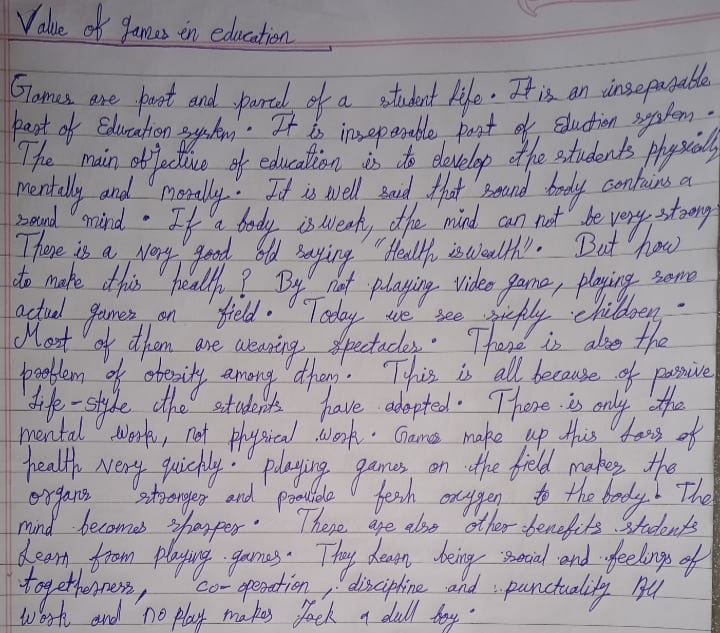 Value of games in education
Games are part and parcel of a student life. It is an inseparable
part of Education system. It is inseperable part of Eduction system.
The main objective of education is to develop the students physically
mentally and morally. It is well said that sound body contains a
sound mind. If a body is weak, the mind can not be very strong
There is a very good old saying "Health is wealth". But how
to make this health? By not playing Video game, playing some
actual games on field. Today we see sickly children.
Most of them are wearing spectacles. There is also the
problem of obesity among them. This is all because of passive
life-style the students have adopted. There is only the
mental work, not physical work. Games make up this loss of
health very quickly. playing games on the field makes the
organs stronger and provide fesh oxygen to the body. The
mind becomes sharper. There are also other benefits students
Learn from playing games. They Learn being social and feelings of
togetherness, co-operation, discipline and punctuality All
work and no play makes Jack a dull boy.